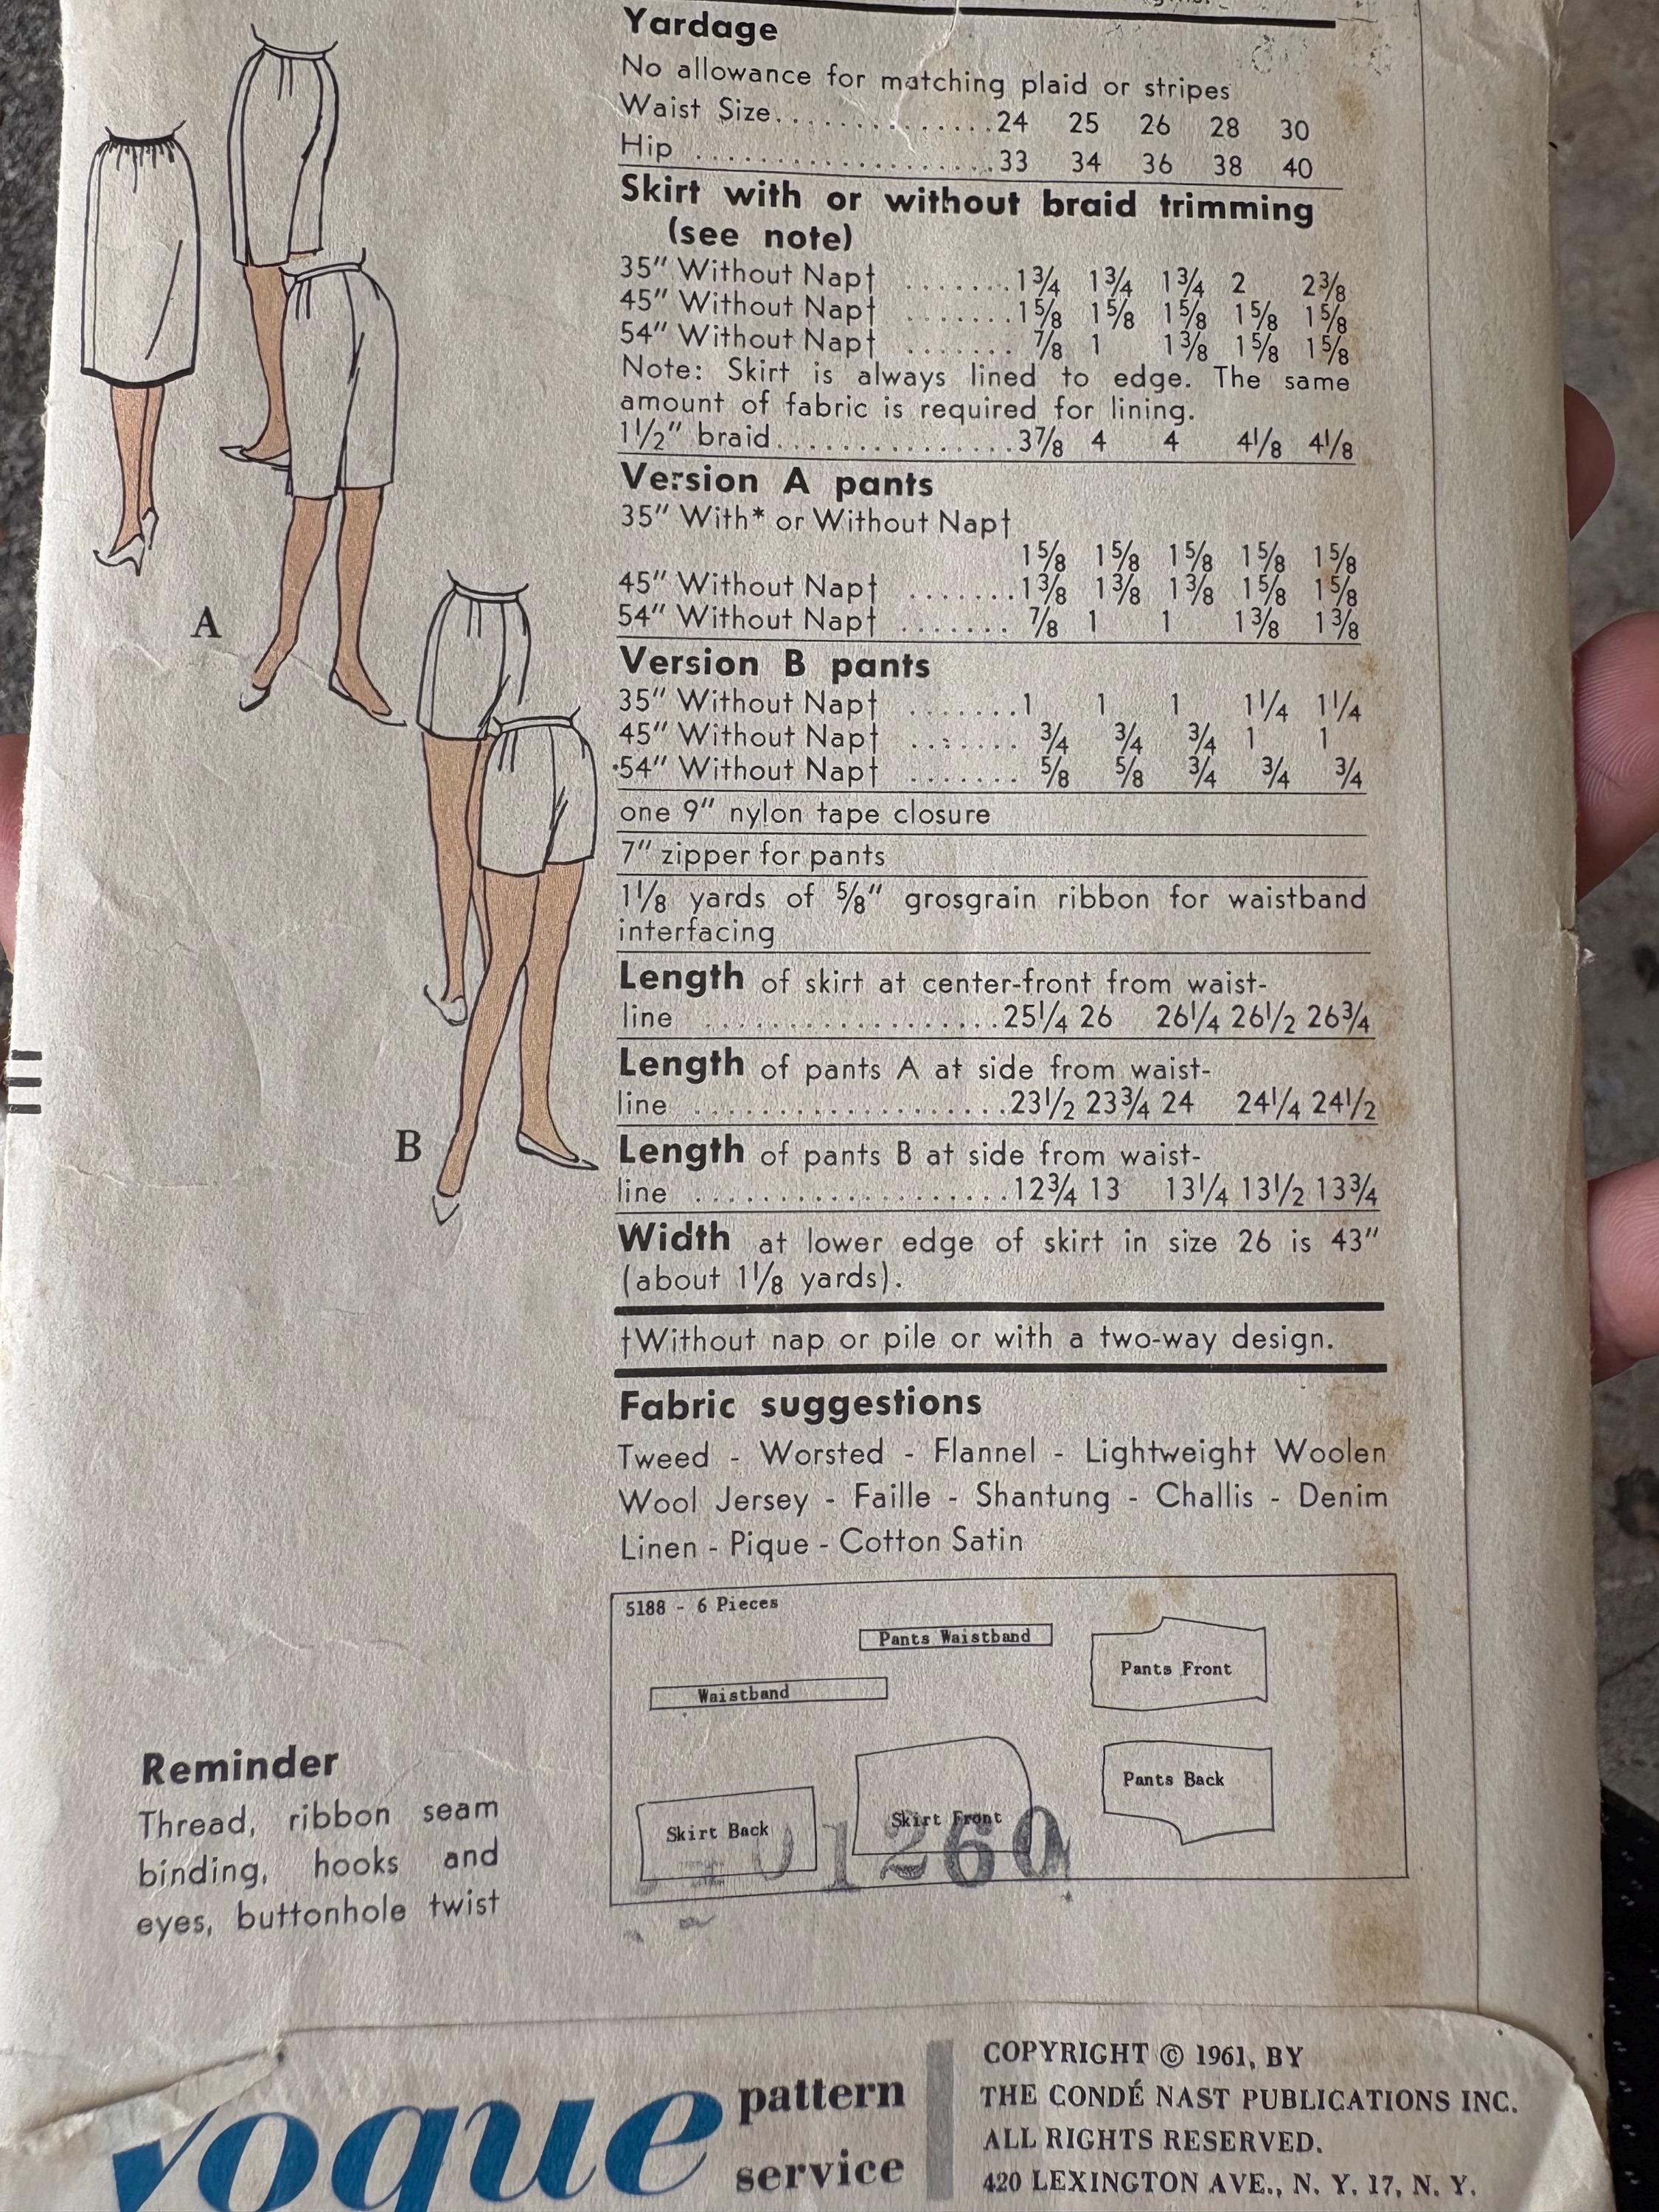 Yardage
No allowance for matching plaid or stripes
Waist Size.............24 25 26 28 30
Hip ..................33 34 36 38 40
Skirt with or without braid trimming
(see note)
35" Without Nap† .......1¾ 1¾ 1¾ 2 2⅜
45" Without Nap† .......1⅝ 1⅝ 1⅝ 1⅝ 1⅝
54" Without Nap† ....... ⅞ 1 1⅜ 1⅝ 1⅝
Note: Skirt is always lined to edge. The same
amount of fabric is required for lining.
1½" braid...............3⅞ 4 4 4⅛ 4⅛
Version A pants
35" With* or Without Nap†
1⅝ 1⅝ 1⅝ 1⅝ 1⅝
45" Without Nap† .......1⅜ 1⅜ 1⅜ 1⅝ 1⅝
54" Without Nap† ....... ⅞ 1 1 1⅜ 1⅜
A
Version B pants
35" Without Nap† .......1 1 1 1¼ 1¼
45" Without Nap† ....... ¾ ¾ ¾ 1 1
54" Without Nap† ....... ⅝ ⅝ ¾ ¾ ¾
one 9" nylon tape closure
7" zipper for pants
1⅛ yards of ⅝" grosgrain ribbon for waistband
interfacing
Length of skirt at center-front from waist-
line ...................25¼ 26 26¼ 26½ 26¾
Length of pants A at side from waist-
line ....................23½ 23¾ 24 24¼ 24½
B
Length of pants B at side from waist-
line ....................12¾ 13 13¼ 13½ 13¾
Width at lower edge of skirt in size 26 is 43"
(about 1⅛ yards).
†Without nap or pile or with a two-way design.
Fabric suggestions
Tweed - Worsted - Flannel - Lightweight Woolen
Wool Jersey - Faille - Shantung - Challis - Denim
Linen - Pique - Cotton Satin
5188 - 6 Pieces
Pants Waistband
Pants Front
Waistband
Pants Back
Skirt Front
Skirt Back
1260
Reminder
Thread, ribbon seam
binding, hooks and
eyes, buttonhole twist
Vogue
pattern
service
COPYRIGHT © 1961, BY
THE CONDÉ NAST PUBLICATIONS INC.
ALL RIGHTS RESERVED.
420 LEXINGTON AVE., N. Y. 17, N. Y.